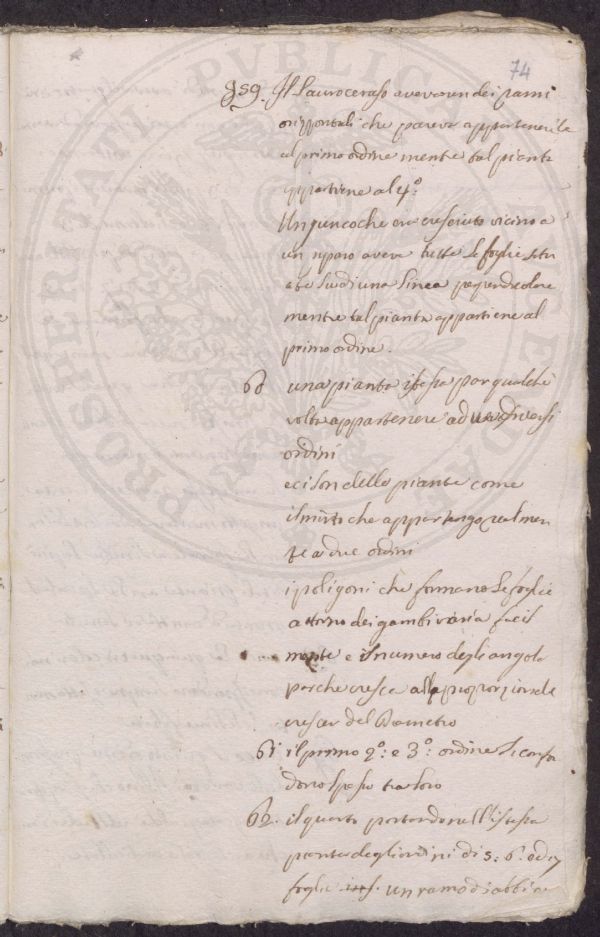 74
§ 59. Il Lauroceraso aveva un dei rami
orizzontali che pareva appartenere le
al primo ordine mentre tal pianta
appartiene al 4.º
Un giunco che era cresciuto vicino a
un riparo aveva tutte le foglie situ
ate su di una linea perpendicolare
mentre tal pianta appartiene al
primo ordine.
60 una pianta istessa par qualche
volta appartenere ad diversi
ordini
e ci son delle piante come
il mirto che appartengo realmen
te a due ordini
i poligoni che formano le foglie
attorno dei gambi varia facil
mente e il numero degli angoli
perche cresce alla proporzione del
crescer del Diametro
61 il primo 2º: e 3º: ordine si confon
dono spesso tra loro
62. il quarto portando nell'istessa
pianta degli ordini di 5: 6. ed 7
foglie un ramo d'abbia
PROSPERITATI PVBLICAE AVGENDAE